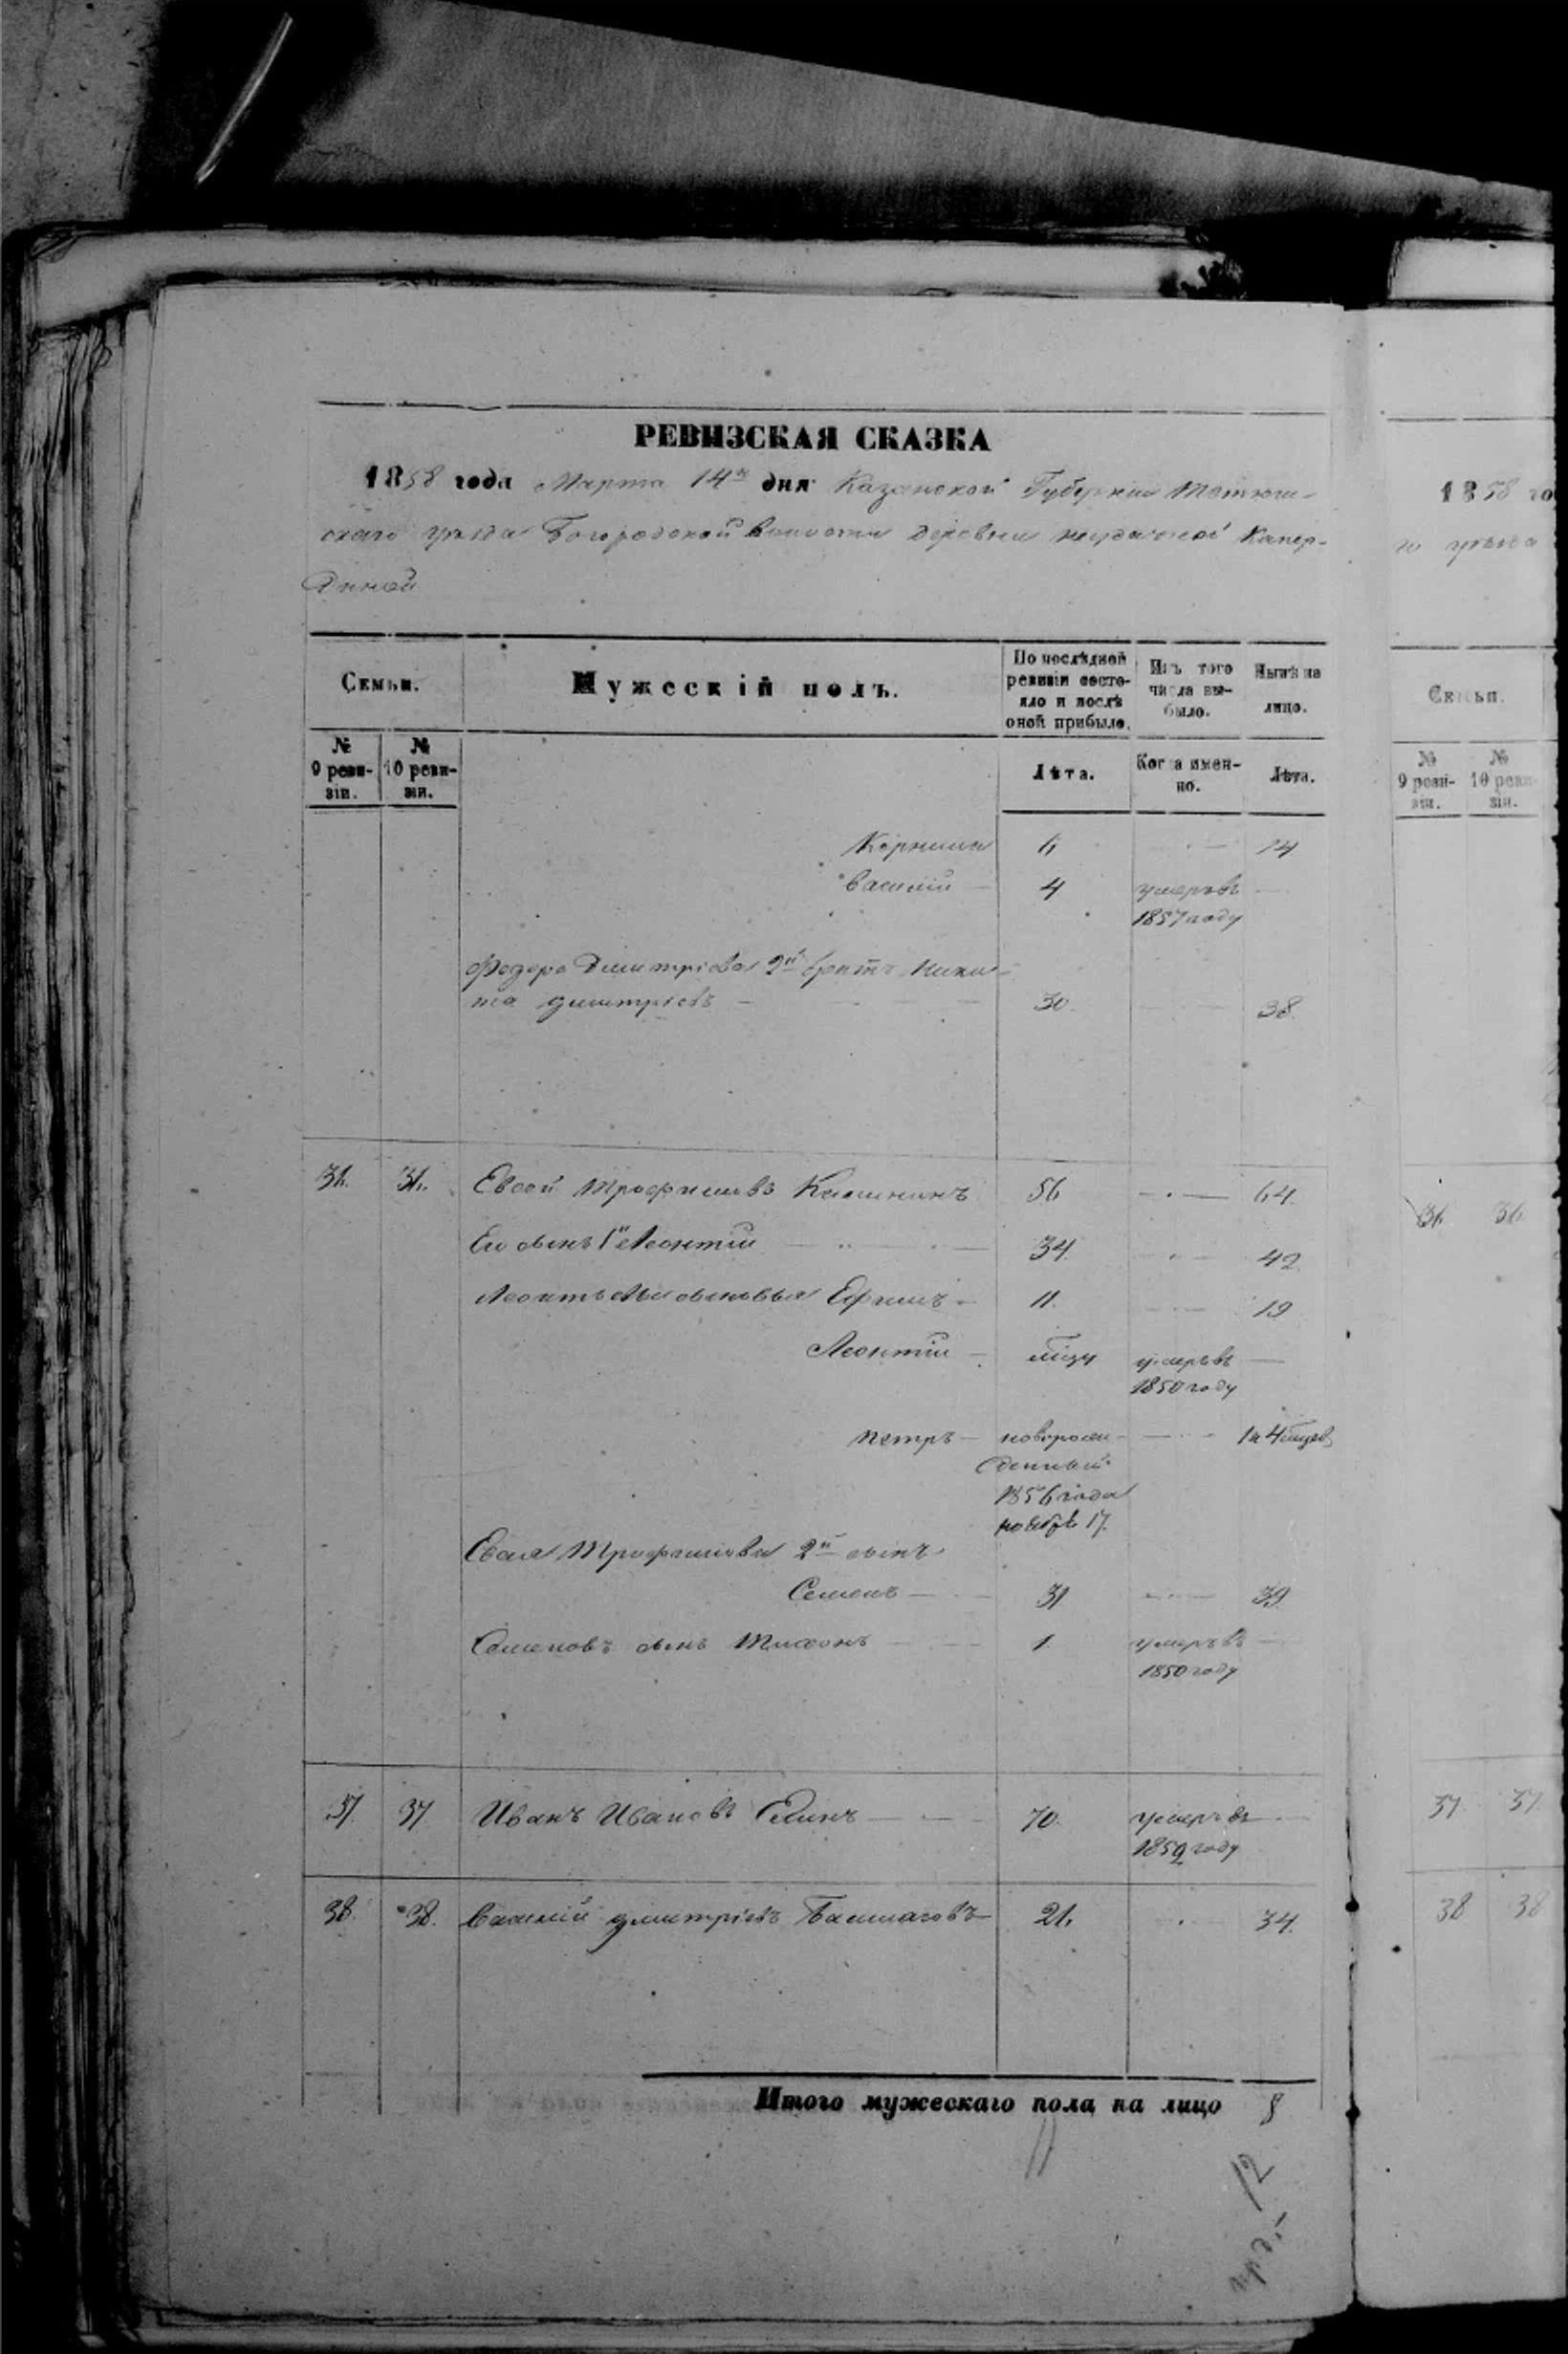 РЕВИЗСКАЯ СКАЗКА
1858 года Марта 14го дня Казанской Губернии Тетюш-
скаго уѣзда Богородской волости деревни
Семьи.
Мужескій полъ.
По послѣдней ревизіи состо-
яло и послѣ оной прибыло.
Изъ того числа вы-
было.
Нынѣ на лицо.
№ 9 реви-
зіи.
№ 10 реви-
зіи.
Лѣта.
Когда имен-
но.
Лѣта.
Корнила 6 14
Василій 4 умеръ въ
1857 году
Федора Димитріева 2й братъ Ники-
та Димитріевъ 30 38
36. 36. Евсей Трофимовъ 56 64
Его сынъ 1й Леонтій 34 42
Леонтьевы сыновья Ефимъ 11 19
Леонтій умеръ въ
1850 году
Петръ новорож-
денный
1856 года
ноября 17.
1 и 4 мѣсяц.
Евсея Трофимова 2й сынъ
Семенъ 31 39
Семеновъ сынъ 1 умеръ въ
1850 году
37 37 Иванъ Ивановъ 70 умеръ въ
1852 году
38 38. Василій Димитріевъ Башмаговъ 26 34
Итого мужескаго пола на лицо 8
1858 го
уѣзда
Семьи.
№ 9 реви-
зіи.
№ 10 реви-
зіи.
36 36
37 37
38 38